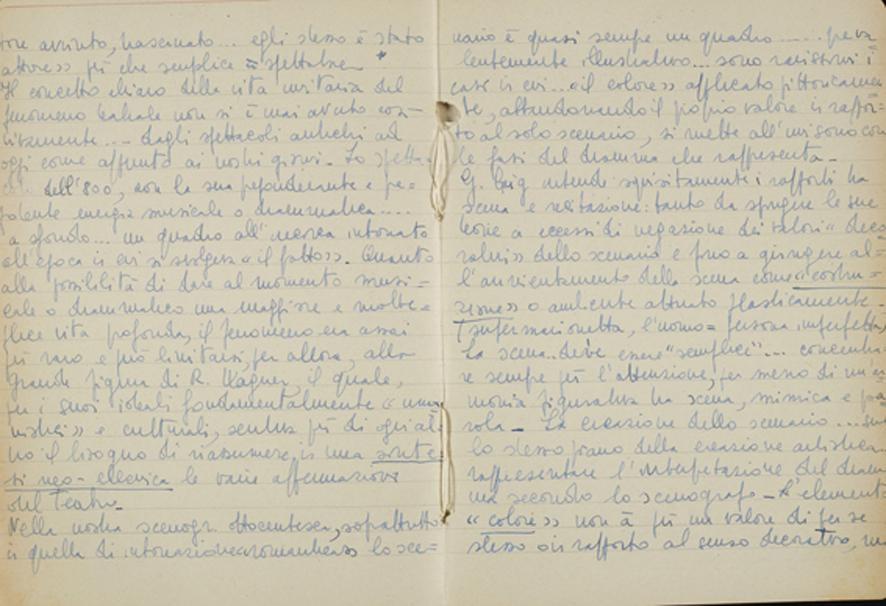 tore avvinto, trascinato... egli stesso è stato
attore» più che semplice = spettatore *
Il concetto chiaro della vita unitaria del
fenomeno teatrale non si è mai avuto con-
dagli spettacoli antichi ad
oggi come appunto ai nostri giorni. Lo spetta-
colo dell'800, con la sua preponderante e pre-
potente energia musicale o drammatica....
a sfondo... un quadro all' intonato
all'epoca in cui si svolgeva «il fatto». Quanto
alla possibilità di dare al momento musi-
cale o drammatico una maggiore e molte=
plice vita profonda, il fenomeno era assai
più raro e può limitarsi, per allora, alla
grande figura di R. Wagner, il quale,
per i suoi ideali fondamentalmente «uma
nistici» e culturali, sentiva più di ogni al=
tro il bisogno di riassumere in una sinte
si neo-ellenica le varie affermazioni
del Teatro.
Nella nostra scenogr. ottocentesca, soprattutto
in quella di intonazione «romantica» lo sce=
nario è quasi sempre un quadro ...... preva
lentemente illustrativo... sono rarissimi i
casi in cui... «il colore» applicato pittoricamen
te, abbandonando il proprio valore in rappor=
to al solo scenario, si mette all'unisono con
le fasi del dramma che rappresenta.
G. Craig intende squisitamente i rapporti tra
scena e recitazione: tanto da spingere le sue
teorie a eccessi di negazione dei valori «deco
rativi» dello scenario e fino a giungere al=
l'avvicentamento della scena come «costru=
zione» o ambiente attuato plasticamente.
(supermarionetta, l'uomo = persona imperfetta)
La scena.. deve essere "semplice".... concentra
re sempre più l'attenzione, per mezzo di un'ar
monia figurativa tra scena, mimica e pa
rola. La creazione dello scenario.... sul
lo stesso piano della creazione artistica..
rappresentare l'interpretazione del dram
ma secondo lo scenografo - L'elemento
«colore» non à più un valore di per se
stesso o in rapporto al senso decorativo, ma